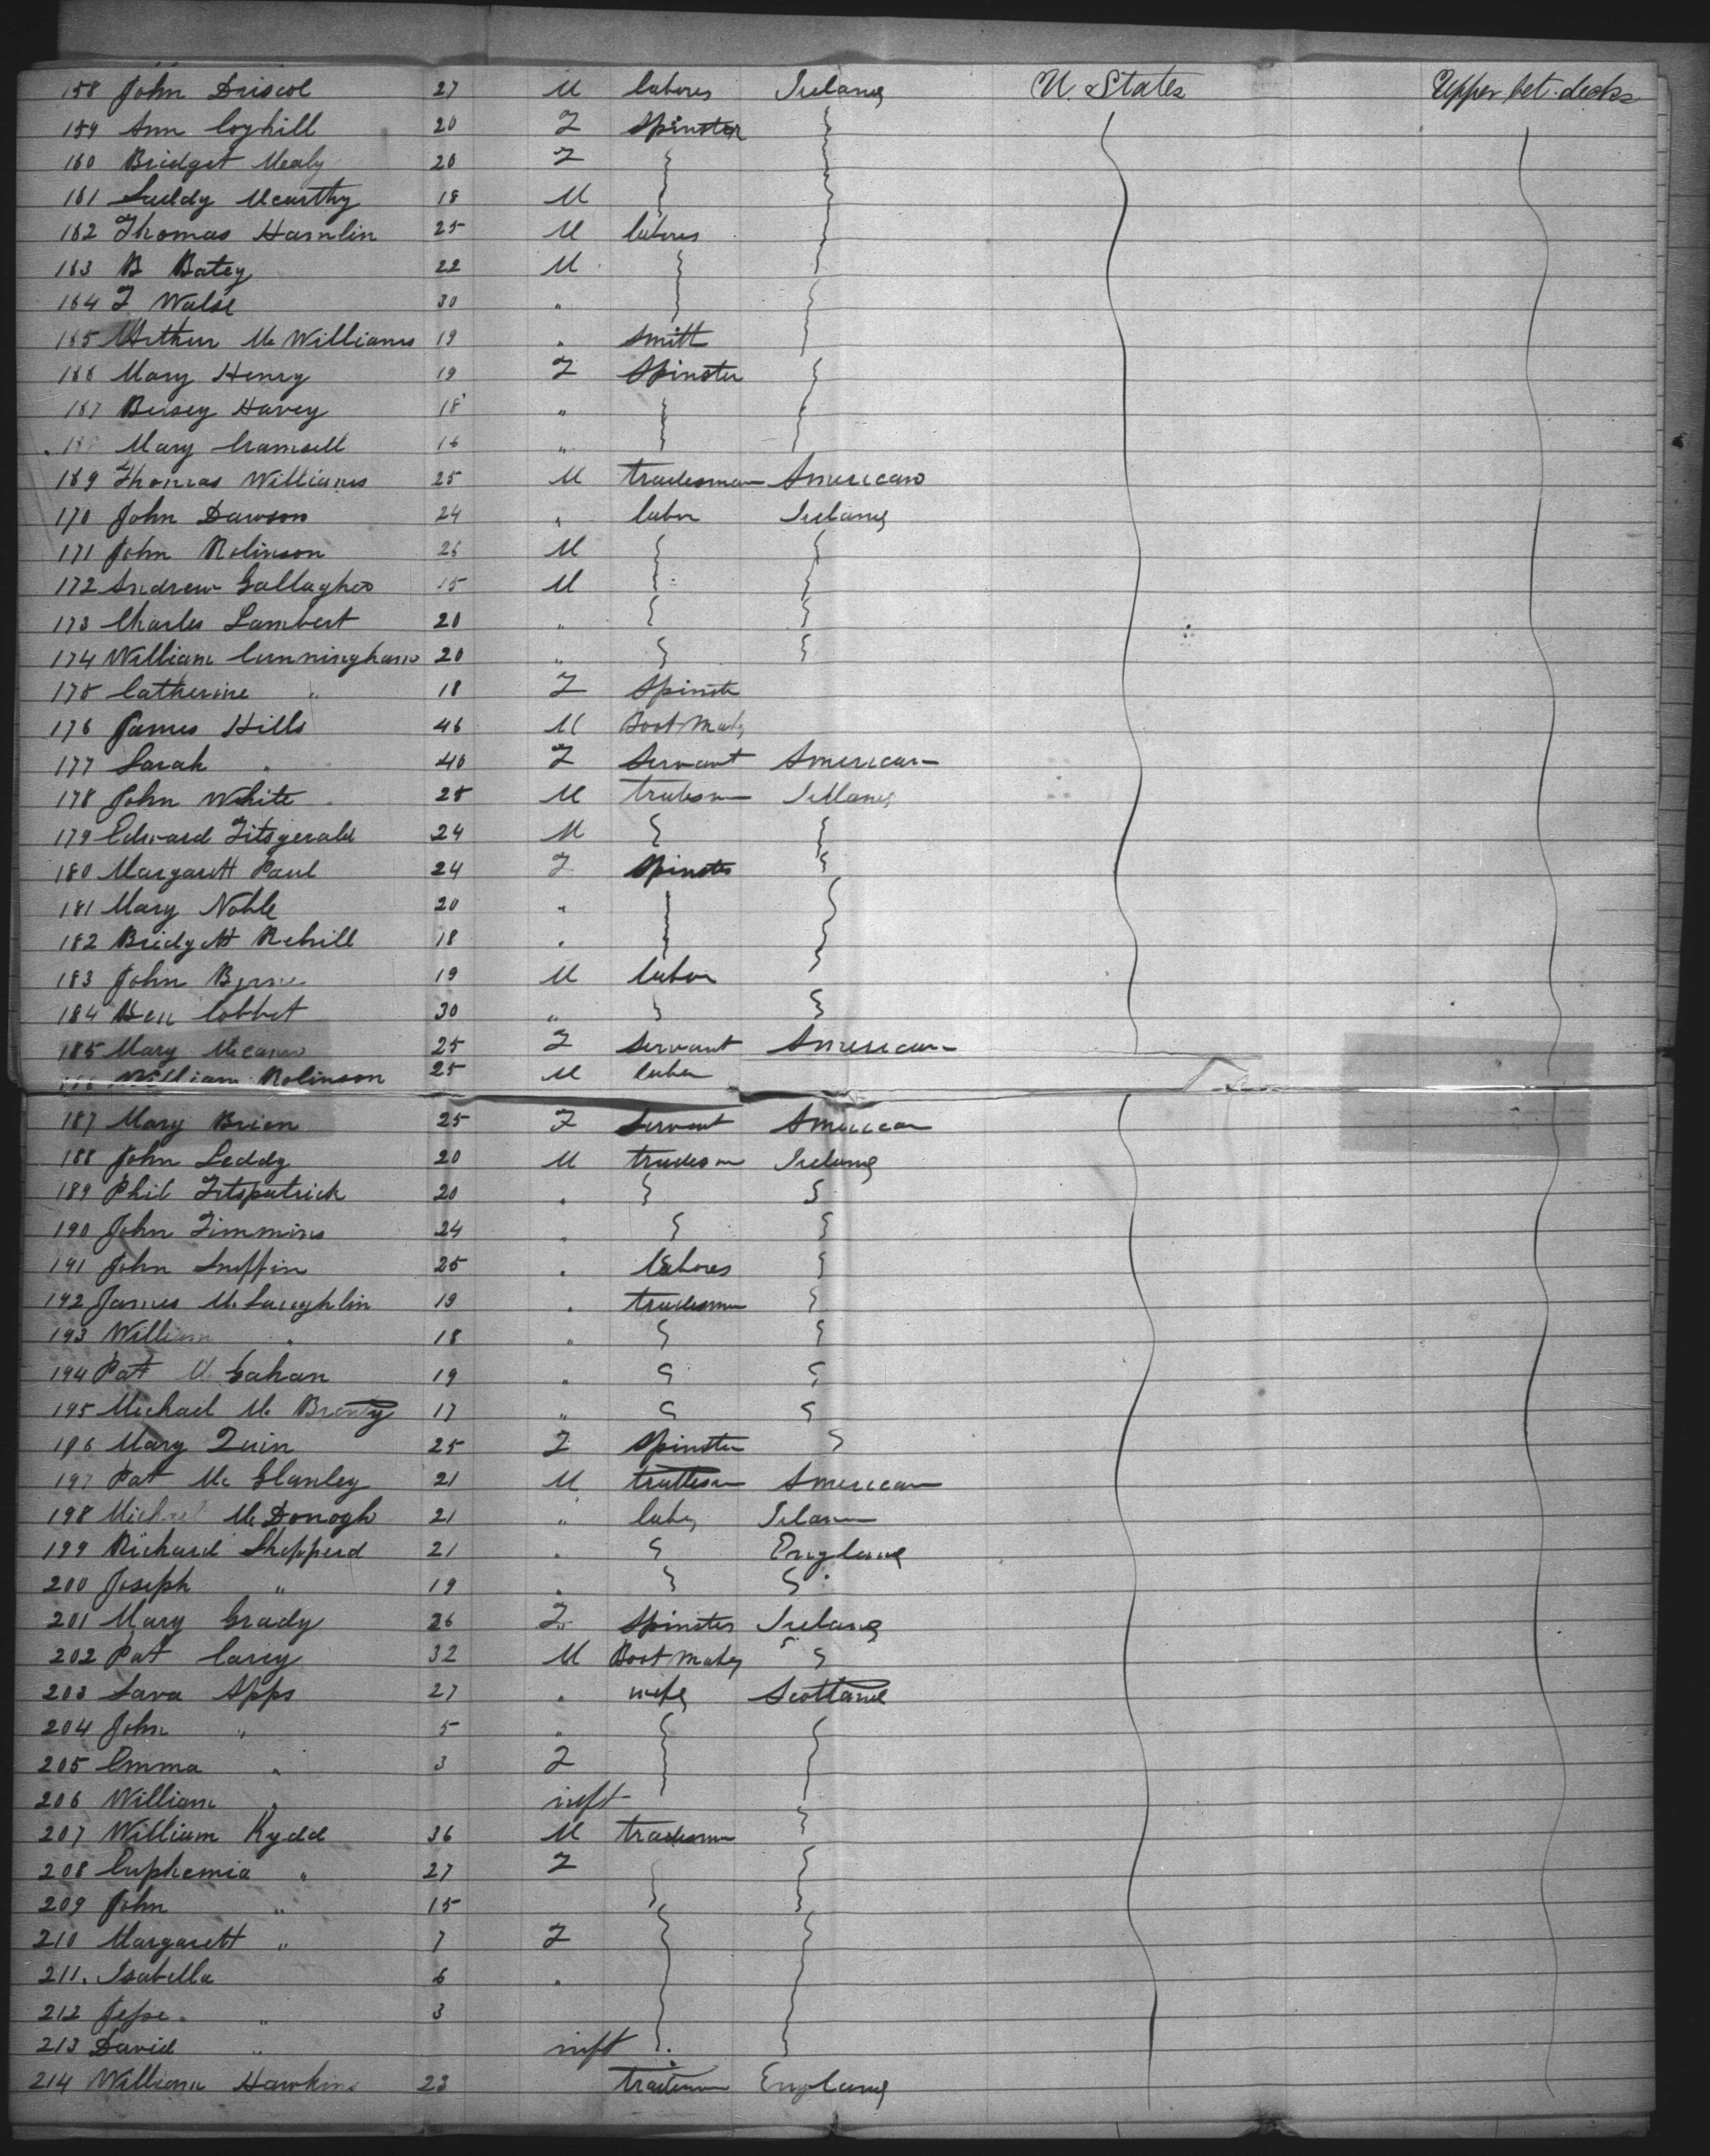 158 John Driscol 27 M labores Ireland U. States Upper bet. decks
159 Ann Coghill 20 F Spinster
160 Bridget Mealy 20 F
161 Mcarthy 18 M
162 Thomas Hamlin 25 M labores
163 B Batey 22 M
164 F Walse 30 "
165 Arthur Mc Williams 19 " Smith
166 Mary Henry 19 F Spinster
167 Betsey Havey 18 "
Mary 16 "
169 Thomas Williams 25 M tradesman American
170 John Dawson 24 " labor Ireland
171 John Robinson 26 M
172 Andrew Gallagher 15 M
173 Charles Lambert 20 "
174 William Cunningham 20 "
175 Catherine " 18 F Spinste
176 James Hills 46 M Boot Maker
177 Sarah " 40 F Servant American
178 John White 25 M tradesm Ireland
179 Edward Fitsgerald 24 M
180 Margarett Paul 24 F Spinster
181 Mary Noble 20 "
182 Bridgett Rehill 18 "
183 John Byrne 19 M labor
184 Cobbet 30 "
185 Mary 25 F Servant American
William Robinson 25 M labor
187 Mary Brien 25 F Servant American
188 John Leddy 20 M tradesm Ireland
189 Phil Fitspatrick 20 "
190 John Timmins 24 "
191 John 25 " labores
192 James McLaughlin 19 " tradesman
193 William " 18 "
194 Pat Mc Gahan 19 "
195 Michael Mc 17 "
196 Mary Quin 25 F Spinster
197 Pat Mc Glanley 21 M tradesm American
198 Michael McDonogh 21 " labor Ireland
199 Richard Shepperd 21 " England
200 Joseph " 19 "
201 Mary Grady 26 F Spinster Ireland
202 Pat Carey 32 M Boot Maker
203 Sara Apps 27 " wife Scotland
204 John " 5 "
205 Emma " 3 F
206 William " inft
207 William Kydd 36 M tradesman
208 Euphemia " 27 F
209 John " 15
210 Margarett " 7 F
211. Isabella 6 "
212 Jesse. " 3
213 David " inft
214 William Hawkins 23 tradesman England